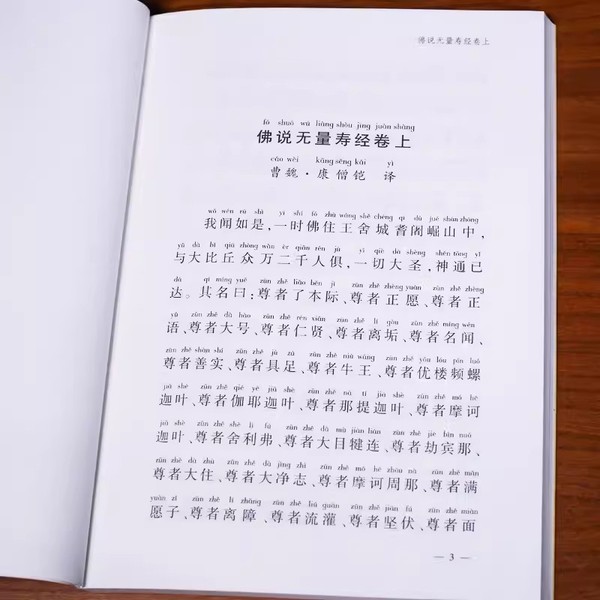 佛说无量寿经卷上
fó shuō wú liàng shòu jīng juàn shàng
佛说无量寿经卷上
cáo wèi kāng sēng kǎi yì
曹魏·康僧铠 译
wǒ wén rú shì yì shí fó zhù wáng shè chéng qí dū jué shān zhōng
我闻如是,一时佛住王舍城耆阇崛山中,
yǔ dà bǐ qiū zhòng wàn èr qiān rén jù yí qiè dà shèng shén tōng yǐ
与大比丘众万二千人俱,一切大圣,神通已
dá qí míng yuē zūn zhě liǎo běn jì zūn zhě zhèng yuàn zūn zhě zhèng
达。其名曰:尊者了本际、尊者正愿、尊者正
yǔ zūn zhě dà hào zūn zhě rén xián zūn zhě lí gòu zūn zhě míng wén
语、尊者大号、尊者仁贤、尊者离垢、尊者名闻、
zūn zhě shàn shí zūn zhě jù zú zūn zhě niú wáng zūn zhě yōu lóu pín luó
尊者善实、尊者具足、尊者牛王、尊者优楼频螺
jiā shè zūn zhě qié yē jiā shè zūn zhě nà tí jiā shè zūn zhě mó hē
迦叶、尊者伽耶迦叶、尊者那提迦叶、尊者摩诃
jiā shè zūn zhě shè lì fú zūn zhě dà mù jiān lián zūn zhě jié bīn nà
迦叶、尊者舍利弗、尊者大目犍连、尊者劫宾那、
zūn zhě dà zhù zūn zhě dà jìng zhì zūn zhě mó hē zhōu nà zūn zhě mǎn
尊者大住、尊者大净志、尊者摩诃周那、尊者满
yuàn zǐ zūn zhě lí zhàng zūn zhě liú guàn zūn zhě jiān fú zūn zhě miàn
愿子、尊者离障、尊者流灌、尊者坚伏、尊者面
— 3 —